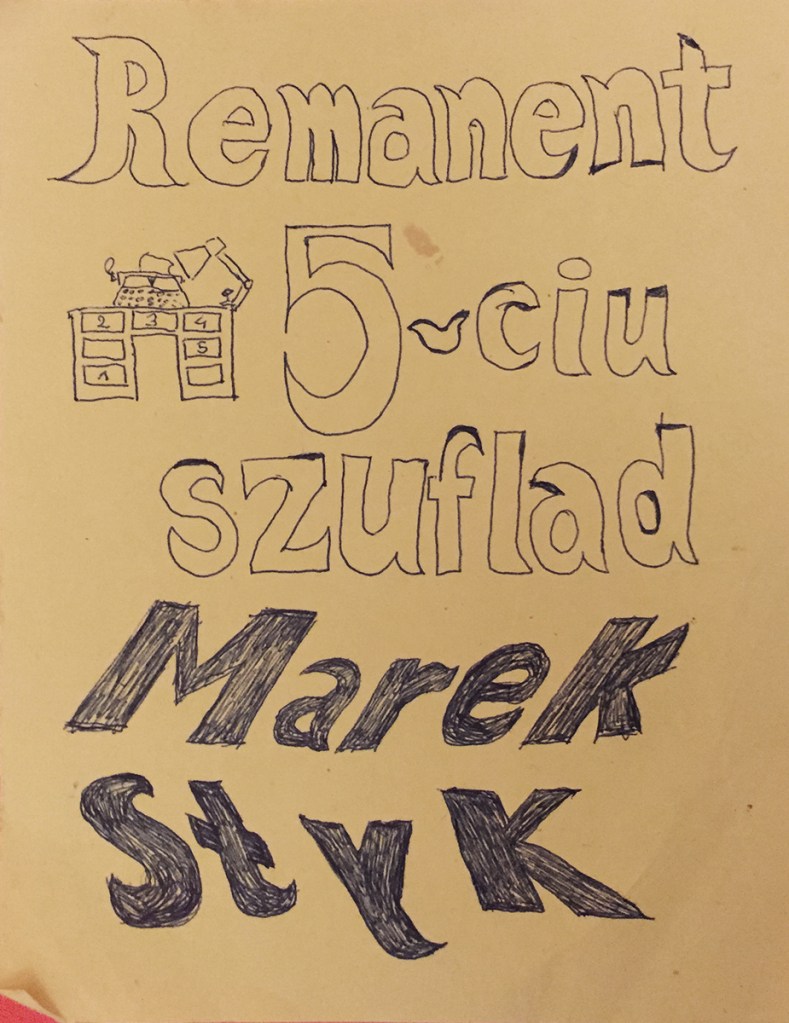 Remanent
5-ciu
2 3 4
5
1
szuflad
Marek
Styk